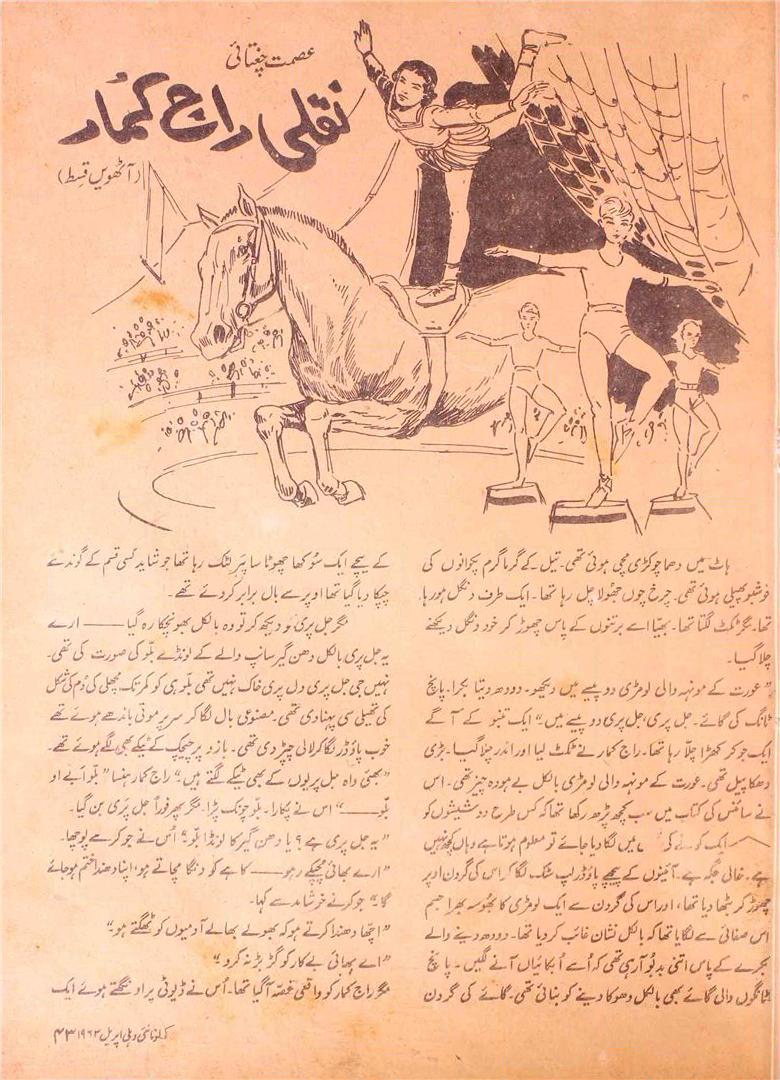 عصمت چغتائی
نقلی راج کمار
(آٹھویں قسط)
ہاٹ میں دھما چوکڑی مچی ہوئی تھی۔ تیل کے گرما گرم پکوانوں کی
خوشبو پھیلی ہوئی تھی۔ چرخ چوں جھولا چل رہا تھا۔ ایک طرف دنگل ہو رہا
تھا۔ مگر ٹکٹ لگتا تھا۔ بھیّا اسے برتنوں کے پاس چھوڑ کر خود دنگل دیکھنے
چلا گیا۔
”عورت کے مونہہ والی لومڑی دو پیسے میں دیکھو۔ دودھ دیتا بکرا۔ پانچ
ٹانگ کی گائے۔ جل پری، جل پری دو پیسے میں۔“ ایک تنبو کے آگے
ایک جوکر کھڑا چلّا رہا تھا۔ راج کمار نے ٹکٹ لیا اور اندر چلا گیا۔ بڑی
دھکا پیل تھی۔ عورت کے مونہہ والی لومڑی بالکل بے ہودہ چیز تھی۔ اس
نے سائنس کی کتاب میں سب کچھ پڑھ رکھا تھا کہ کس طرح دو شیشوں کو
ایک کونے کی میں لگا دیا جائے تو معلوم ہوتا ہے وہاں کچھ نہیں
ہے۔ خالی جگہ ہے۔ آئینوں کے پیچھے پاؤڈر لپ سٹک لگا کر اس کی گردن اوپر
چھوڑ کر بٹھا دیا تھا، اور اس کی گردن سے ایک لومڑی کا بھوسہ بھرا جسم
اس صفائی سے لگایا تھا کہ بالکل نشان غائب کر دیا تھا۔ دودھ دینے والے
بکرے کے پاس اتنی بدبو آ رہی تھی کہ اُسے اُبکائیاں آنے لگیں۔ پانچ
ٹانگوں والی گائے بھی بالکل دھوکا دینے کو بنائی تھی۔ گائے کی گردن
کے نیچے ایک سُوکھا چھوٹا سا پَیر لٹک رہا تھا جو شاید کسی قسم کے گوند سے
چپکا دیا گیا تھا اوپر سے بال برابر کر دئے تھے۔
مگر جل پری کو دیکھ کر تو وہ بالکل بھونچکا رہ گیا —— ارے
یہ جل پری بالکل دھن گیر سانپ والے کے لونڈے بلّو کی صورت کی تھی۔
نہیں جی جل پری ول پری خاک نہیں تھی بلّو ہی کو کمر تک مچھلی کی دُم کی شکل
کی تھیلی سی پہنا دی تھی۔ مصنوعی بال لگا کر سر پر موتی باندھے ہوئے تھے
خوب پاؤڈر لگا کر لالی چپڑ دی تھی۔ بازو پر چیچک کے ٹیکے بھی لگے ہوئے تھے۔
”بھئی واہ جل پریوں کے بھی ٹیکے لگتے ہیں۔“ راج کمار ہنسا ”بلّو اَبے او
بلّو——“ اس نے پکارا۔ بلّو چونک پڑا۔ مگر پھر فوراً جل پری بن گیا۔
”یہ جل پری ہے؟ یا دھن گیر کا لونڈا بلّو؟“ اُس نے جوکر سے پوچھا۔
”ارے بھائی چپکے رہو —— کاہے کو دنگا مچاتے ہو، اپنا دھندا ختم ہو جائے
گا“ جوکر نے خوشامد سے کہا۔
”اچھا دھندا کرتے ہو کہ بھولے بھالے آدمیوں کو ٹھگتے ہو“
”اے بھائی بے کار کو گڑبڑ نہ کرو“
مگر راج کمار کو واقعی غصّہ آ گیا تھا۔ اُس نے ڈیوٹی پر اونگھتے ہوئے ایک
کھلونا نئی دہلی اپریل ۱۹۶۳ ۴۳